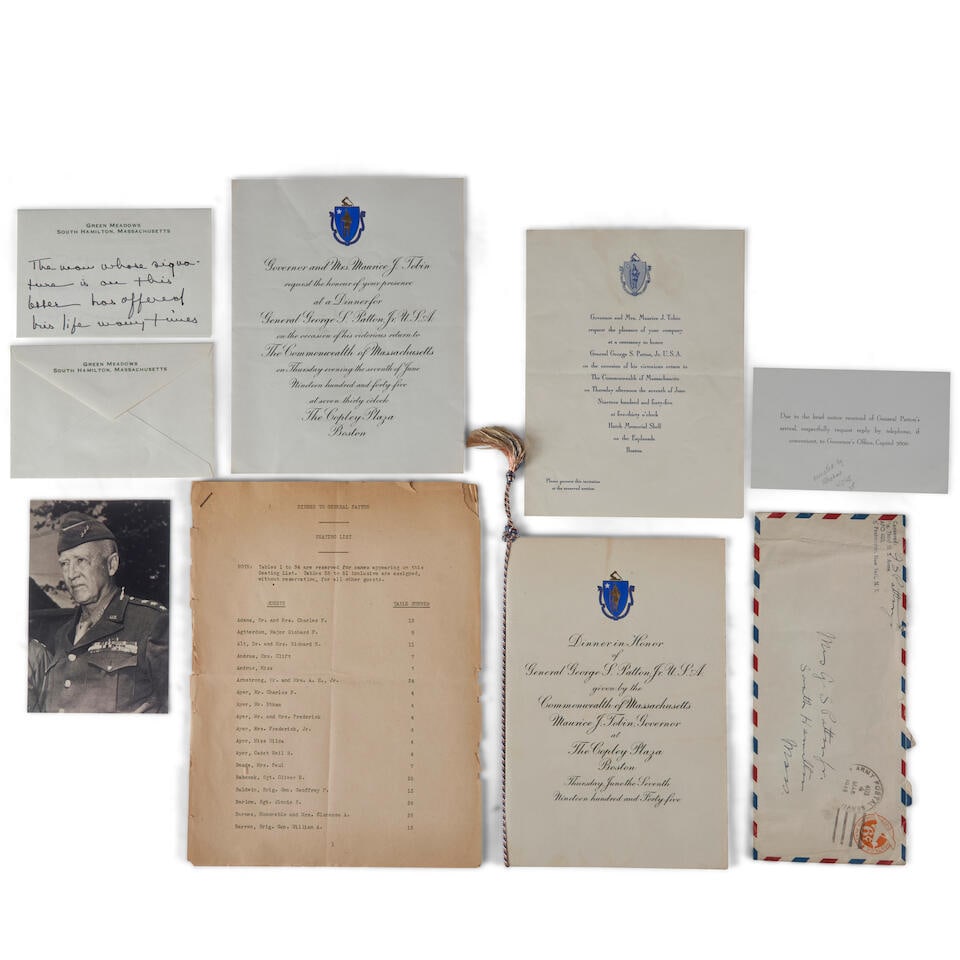 GREEN MEADOWS
SOUTH HAMILTON, MASSACHUSETTS
The man whose signa-
ture is on this
letter has offered
his life many times
GREEN MEADOWS
SOUTH HAMILTON, MASSACHUSETTS
Governor and Mrs. Maurice J. Tobin
request the honour of your presence
at a Dinner for
General George S. Patton, Jr. U.S.A.
on the occasion of his victorious return to
The Commonwealth of Massachusetts
on Thursday evening the seventh of June
Nineteen hundred and forty five
at seven thirty o'clock
The Copley Plaza
Boston
Governor and Mrs. Maurice J. Tobin
request the pleasure of your company
at a ceremony to honor
General George S. Patton, Jr. U.S.A.
on the occasion of his victorious return to
The Commonwealth of Massachusetts
on Thursday afternoon the seventh of June
Nineteen hundred and forty-five
at five-thirty o'clock
Hatch Memorial Shell
on the Esplanade
Boston
Please present this invitation
at the reserved section.
Due to the brief notice received of General Patton's
arrival, respectfully request reply by telephone, if
convenient, to Governor's Office, Capitol 3600
DINNER TO GENERAL PATTON
SEATING LIST
NOTE: Tables 1 to 54 are reserved for names appearing on this
Seating List. Tables 55 to 61 inclusive are assigned,
without reservation, for all other guests.
GUESTS TABLE NUMBER
Adams, Mr. and Mrs. Charles F. 12
Agtterdon, Major Richard P. 9
Alt, Dr. and Mrs. Richard E. 11
Andrus, Mrs. Clift 7
Andrus, Miss 7
Armstrong, Mr. and Mrs. A. H., Jr. 24
Ayer, Mr. Charles F. 4
Ayer, Mr. Ethan 4
Ayer, Mr. and Mrs. Frederick 4
Ayer, Mrs. Frederick, Jr. 4
Ayer, Miss Hilda 4
Ayer, Cadet Neil R. 4
Mrs. Paul 7
Babcock, Cpt. Oliver D.
Baldwin, Brig. Gen. Geoffrey P.
Barlow, Sgt.
Barnes, Honorable and Mrs. Clarence A.
Barron, Brig. Gen. William A.
1
Dinner in Honor
of
General George S. Patton, Jr. U.S.A.
given by the
Commonwealth of Massachusetts
Maurice J. Tobin, Governor
at
The Copley Plaza
Boston
Thursday June the Seventh
Nineteen hundred and Forty five
Mrs G S Patton Jr.
South Hamilton
Mass
ARMY POSTAL
MAR
1945